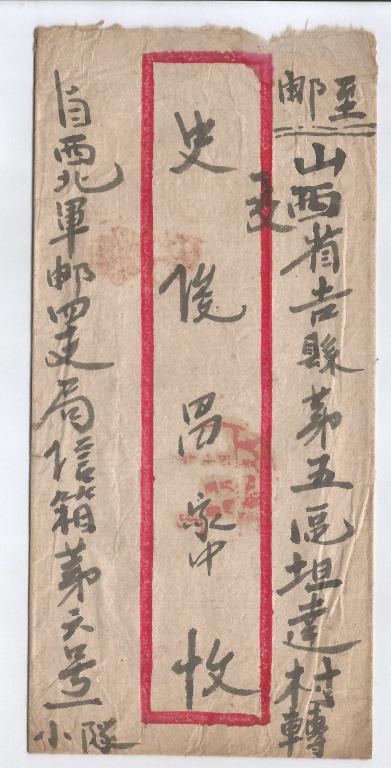 邮至
山西省吉縣第五區坦達村轉
交
史俊昌家中收
自西北軍邮四支局信箱第六号一
小隊